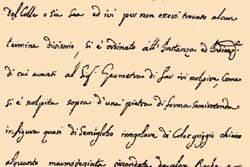 del Colle o sia Sea ad ivi per non esservi trovato alcun
termine divisorio, si è ordinato all' Instanza ed
di cui avanti al Sig.r Geometra di far ivi scolpire, come
si è scolpita sopra d' una pietra di forma semirotonda
in figura quasi di Semiglobo irregolare di Color griggio chiaro
alquanto circondata